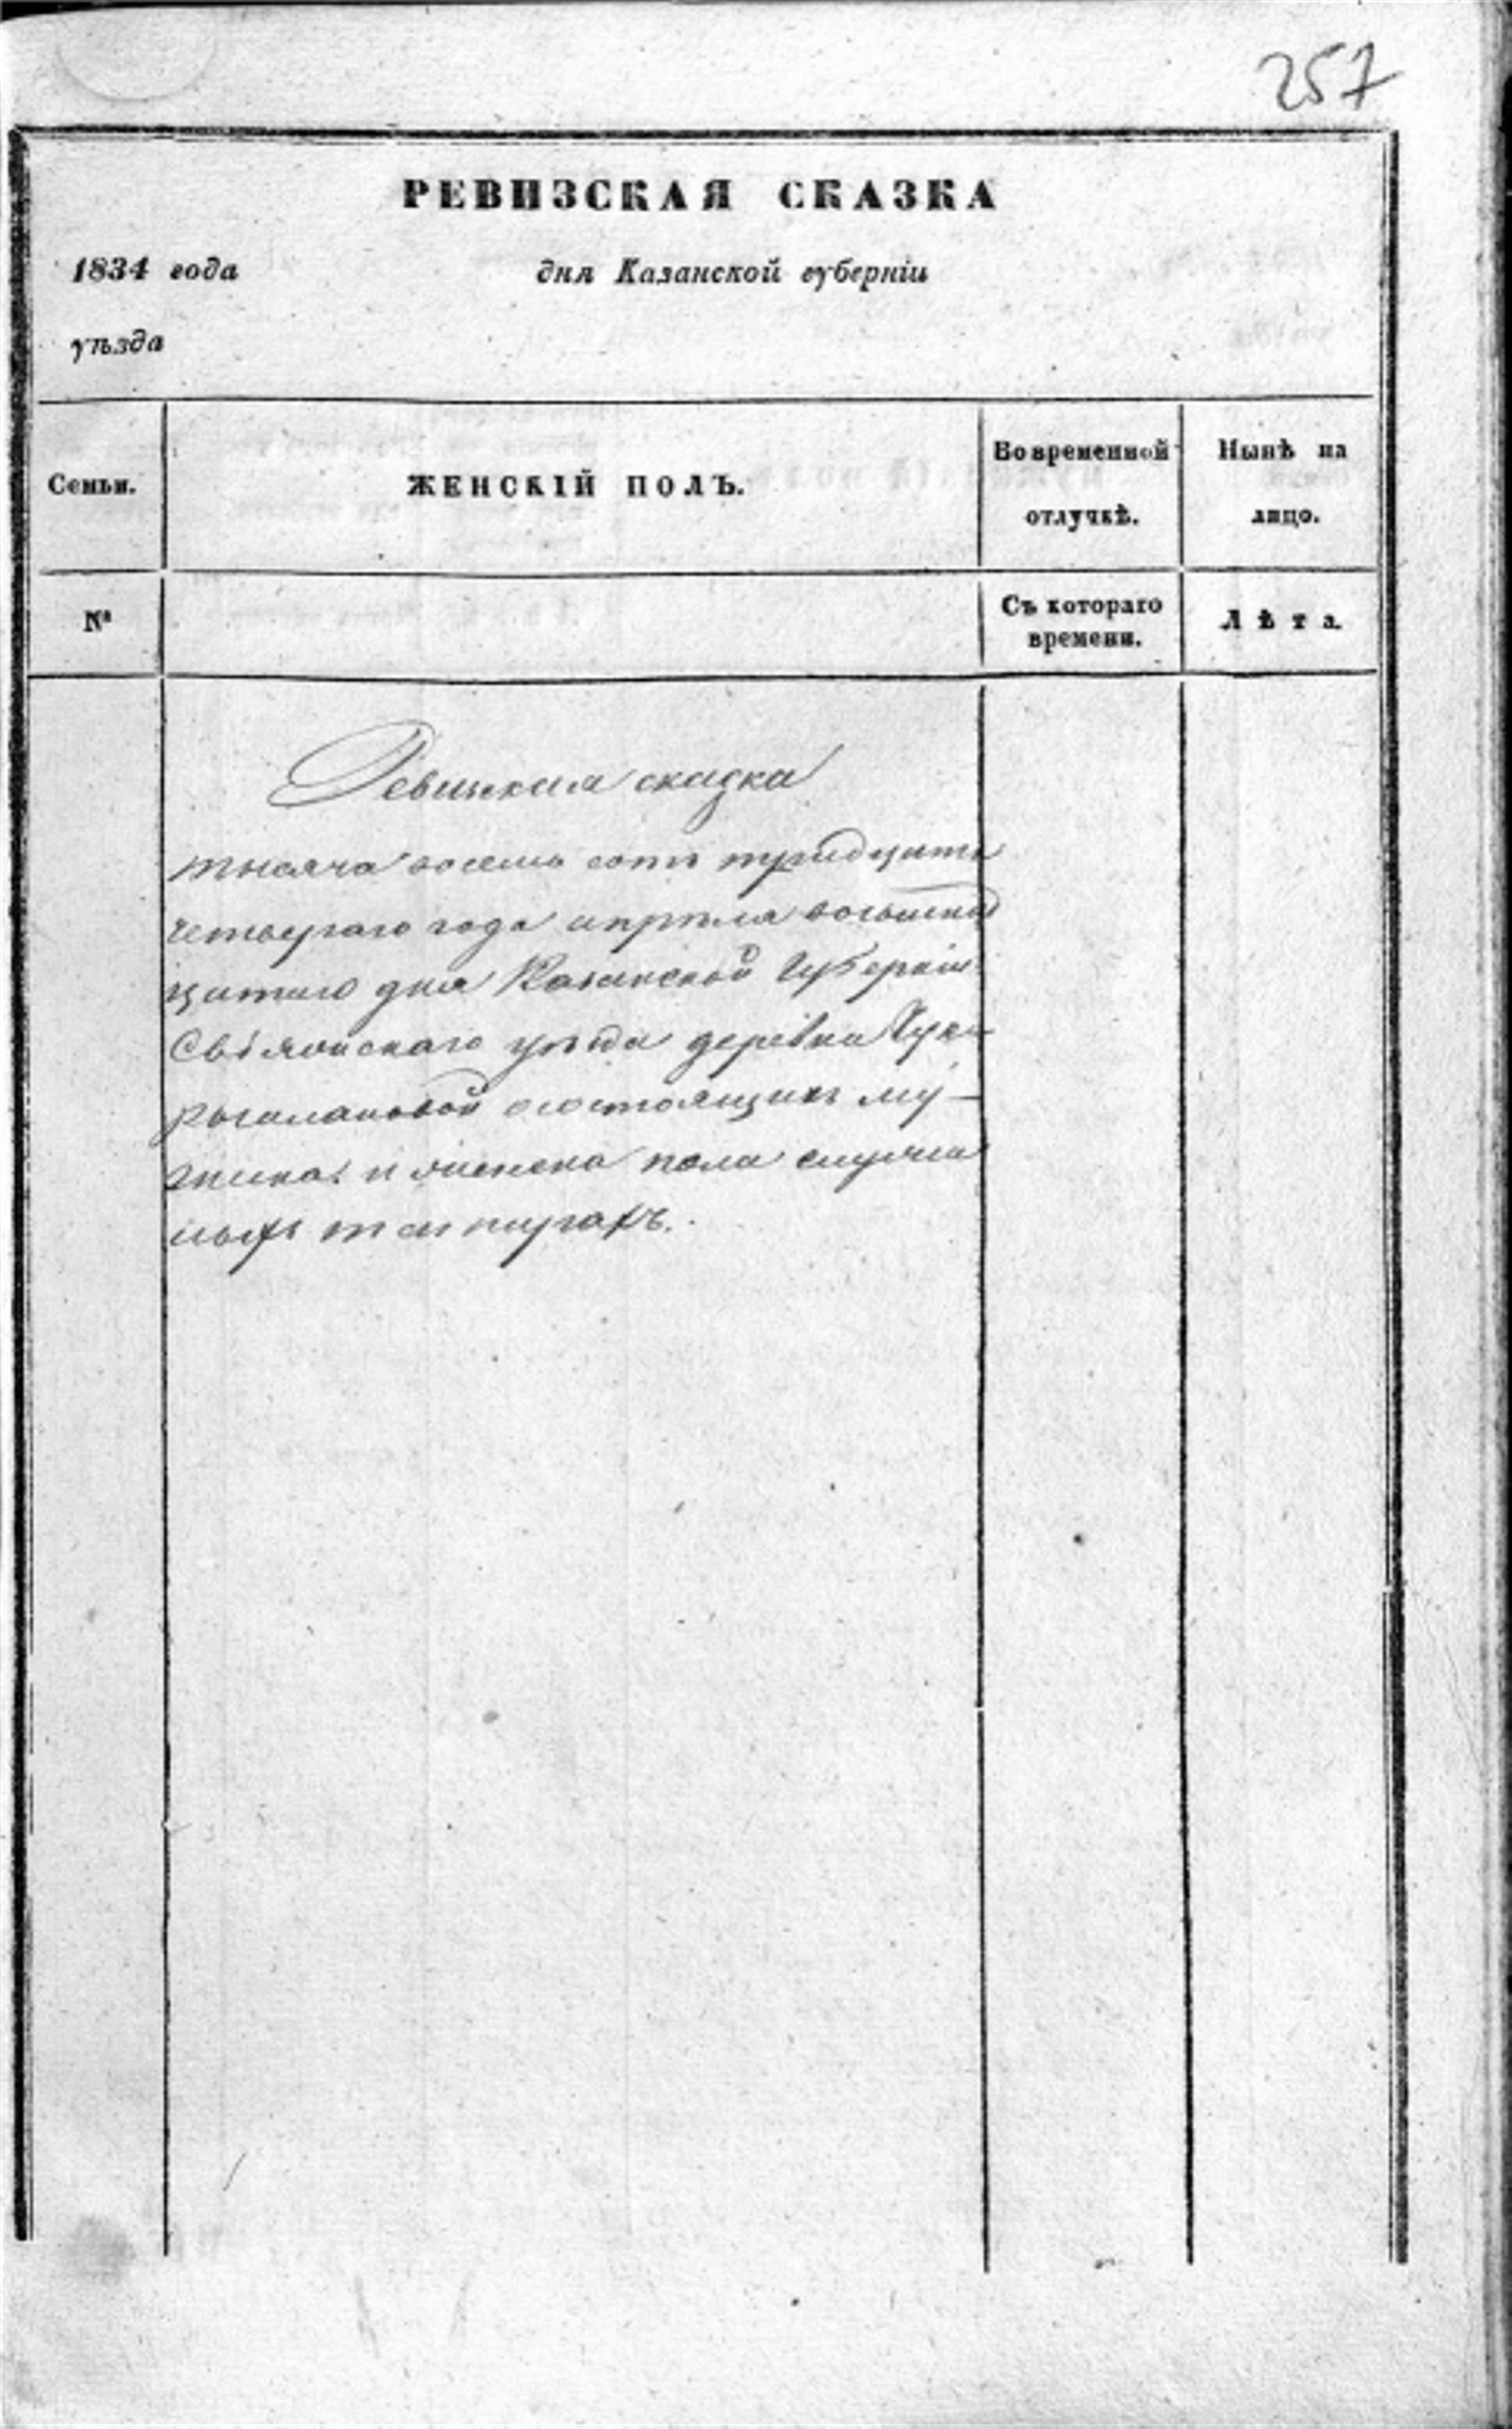 257
РЕВИЗСКАЯ СКАЗКА
1834 года дня Казанской губерніи
уѣзда
Семьи. ЖЕНСКІЙ ПОЛЪ. Во временной отлучкѣ. Нынѣ на лицо.
№ Съ котораго времени. Лѣта.
Ревизкая сказка
тысяча восемь сотъ тридцать
четвертаго года апрѣля
дня Казанской Губерніи
Свіяжскаго уѣзда деревни
состоящихъ му-
и женска пола